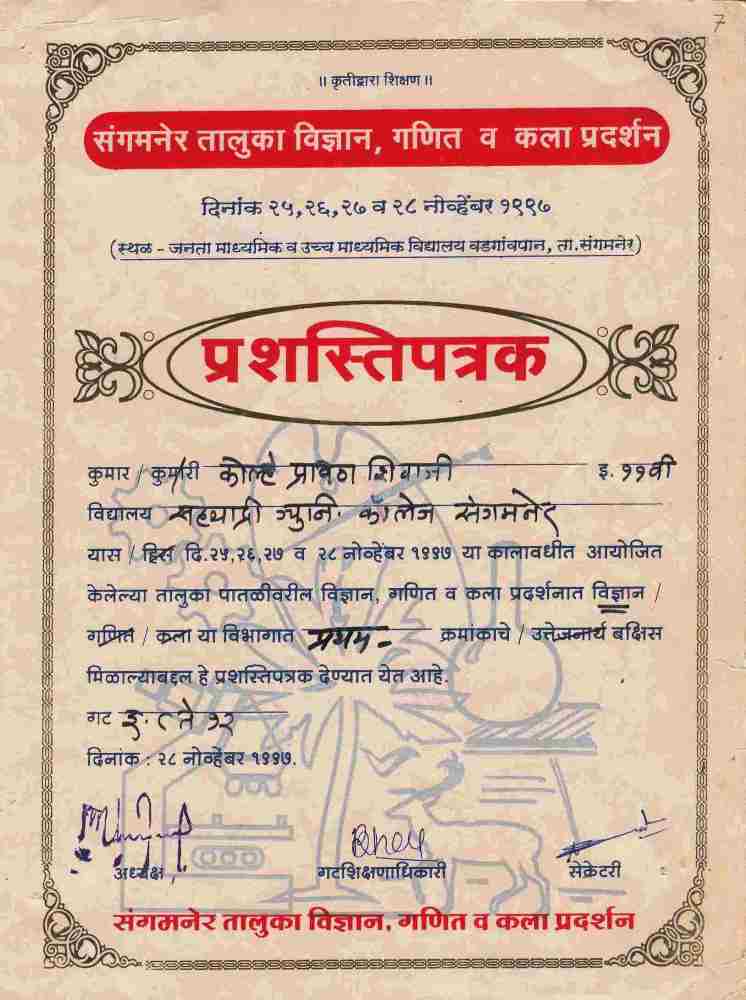 7
॥ कृतीद्वारा शिक्षण ॥
संगमनेर तालुका विज्ञान, गणित व कला प्रदर्शन
दिनांक २५,२६,२७ व २८ नोव्हेंबर १९९७
(स्थळ - जनता माध्यमिक व उच्च माध्यमिक विद्यालय वडगांवपान, ता.संगमनेर)
प्रशस्तिपत्रक
कुमार / कुमारी कोल्हे प्रविण शिवाजी इ. ११वी
विद्यालय सह्याद्री ज्युनि. कॉलेज संगमनेर
यास / हिस दि.२५,२६,२७ व २८ नोव्हेंबर १९९७ या कालावधीत आयोजित
केलेल्या तालुका पातळीवरील विज्ञान, गणित व कला प्रदर्शनात विज्ञान /
गणित / कला या विभागात प्रथम - क्रमांकाचे / उत्तेजनार्थ बक्षिस
मिळाल्याबद्दल हे प्रशस्तिपत्रक देण्यात येत आहे.
गट इ. ८ ते १२
दिनांक : २८ नोव्हेंबर १९९७.
अध्यक्ष गटशिक्षणाधिकारी सेक्रेटरी
संगमनेर तालुका विज्ञान, गणित व कला प्रदर्शन